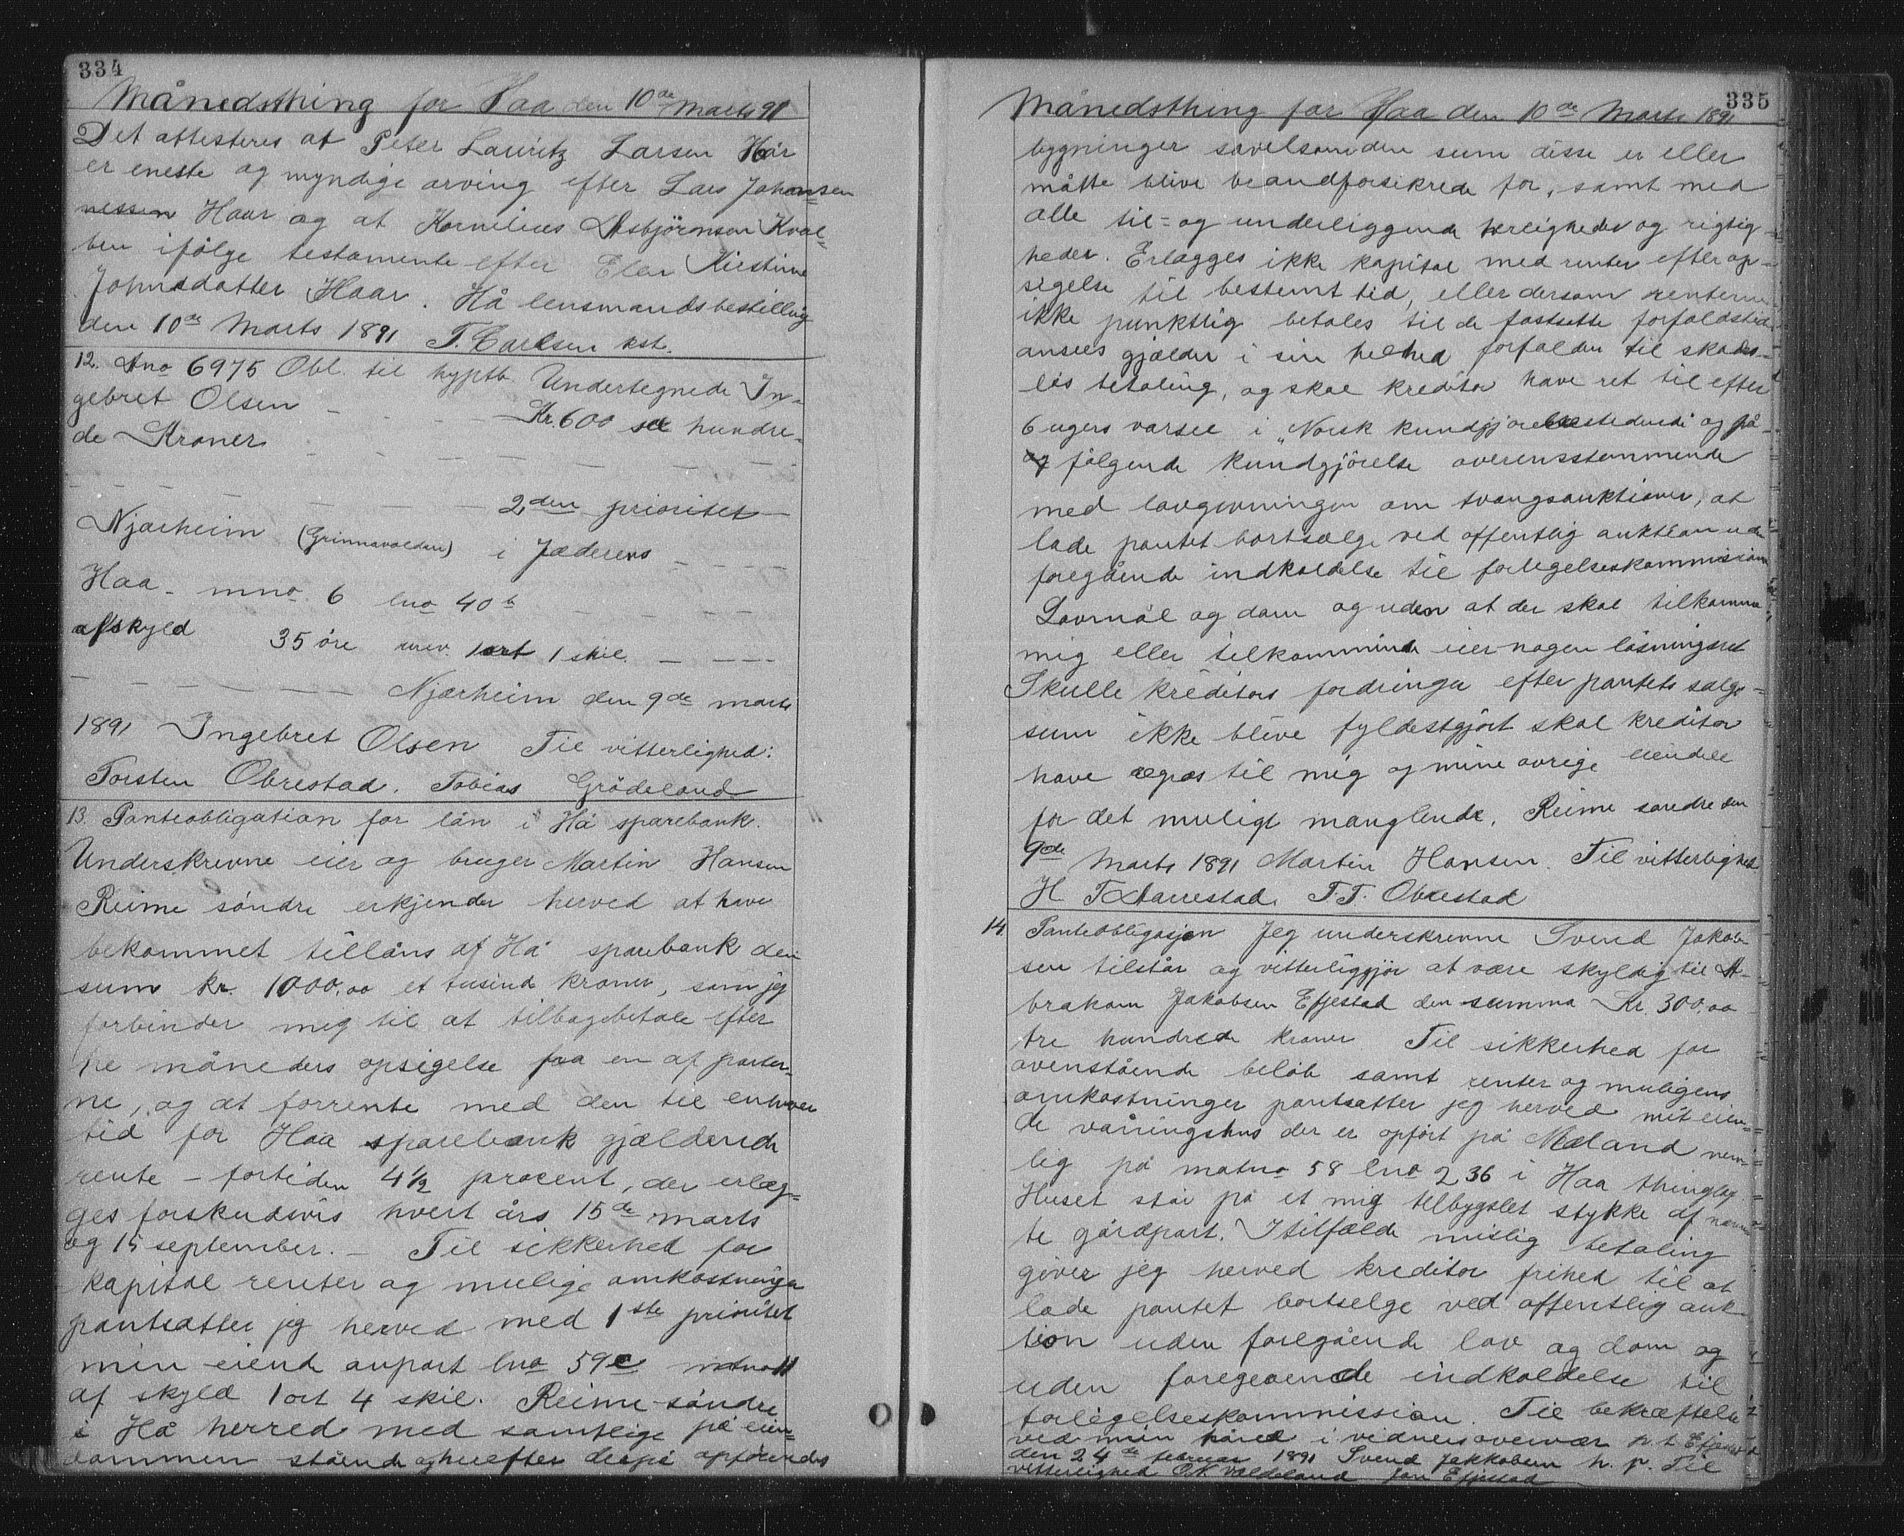 334
Månedsthing for Haa den 10de Marts 91
Det attesteres at Peter Lauritz Larsen Hår
er eneste og myndige arving efter Lars Johan=
nessen Haar og at Kornelius Asbjörnsen Kval=
ben ifölge testamente efter Elen Kirstine
Johnsdatter Haar. Hå lensmandsbestilling
den 10de Marts 1891 T. Carlsen kst.
12. Ano 6975 Obl. til hyptb. Undertegnede In=
gebret Olsen — — — Kr. 600 sex hundre=
de Kroner — — — —
— — — — 2den prioritet —
Njærheim (Grinnavolden) i Jæderens — — —
Haa — mno 6 lno 40b — — — —
afskyld 35 öre urev. 1 ort 1 skil. — — —
— — — — — Njærheim den 9de marts
1891 Ingebret Olsen Til vitterlighed:
Torsten Obrestad. Tobias Grödeland
13. Panteobligation for lån i Hå sparebank.
Underskrevne eier og bruger Martin Hansen
Reime söndre erkjender herved at have
bekommet tillåns af Hå sparebank den
sum kr. 1000,00 et tusind kroner, som jeg
forbinder mig til at tilbagebetale efter
tre måneders opsigelse fra en af parter=
ne, og at forrente med den til enhver
tid for Haa sparebank gjældende
rente — fortiden 4½ procent, der erlæg=
ges forskudsvis hvert års 15de marts
og 15 september. — Til sikkerhed for
kapital renter og mulige omkostninger
pantsætter jeg herved med 1ste prioritet
min eiend anpart lno 59c matno 11
af skyld 1 ort 4 skil. Reime söndre
i Hå herred med samtlige på eien=
dommen stående og herefter derpå opförendes
335
Månedsthing for Haa den 10de Marts 1891
bygninger såvelsom den sum disse er eller
måtte blive brandforsikrede for, samt med
alle til= og underliggende herligheder og rigtig=
heder. Erlægges ikke kapital med renter efter op=
sigelse til bestemt tid, eller dersom renterne
ikke punktlig betales til de fastsatte forfaldstid
ansees gjælden i sin helhed forfalden til skades=
lös betaling, og skal kreditor have ret til efter
6 ugers varsel i „Norsk kundgjörelsestidende" og på=
fölgende kundgjörelse overensstemmende
med lovgivningen om tvangsauktioner, at
lade pantet bortsælge ved offentlig auktion uden
foregående indkaldelse til forligelseskommission
Lovmål og dom og uden at der skal tilkomme
mig eller tilkommende eier nogen lösningsret
Skulle kreditors fordringer efter pantets salgs=
sum ikke blive fyldestgjört skal kreditor
have regres til mig og mine övrige eiendele
for det muligt manglende. Reime söndre den
9de Marts 1891 Martin Hansen. Til vitterlighed
H. T. Harrestad. T. T. Obrestad
14. Panteobligasjon Jeg underskrevne Svend Jakob
sen tilstår og vitterliggjör at være skyldig til A=
braham Jakobsen Efjestad den summa Kr. 300,00
tre hundrede kroner. Til sikkerhed for
ovenstående belöb samt renter og muligens
omkostninger pantsætter jeg herved mit eien=
de våningshus der er opfört på Mæland nem=
lig på matno 58 lno 236 i Haa thinglag
Huset står på et mig tilbygslet stykke af nævn=
te gårdpart. I tilfælde mislig betaling
giver jeg herved kreditor frihed til at
lade pantet bortselge ved offentlig auk=
tion uden foregående lov og dom og
uden foregaaende indkaldelse til
forligelseskommission. Til bekræftelse
ved min hånd i vidners overvær p. t. Efjestad
den 24de februar 1891 Svend Jakkobsen m. p. Til
vitterlighed O. N. Valdeland Jon Efjestad